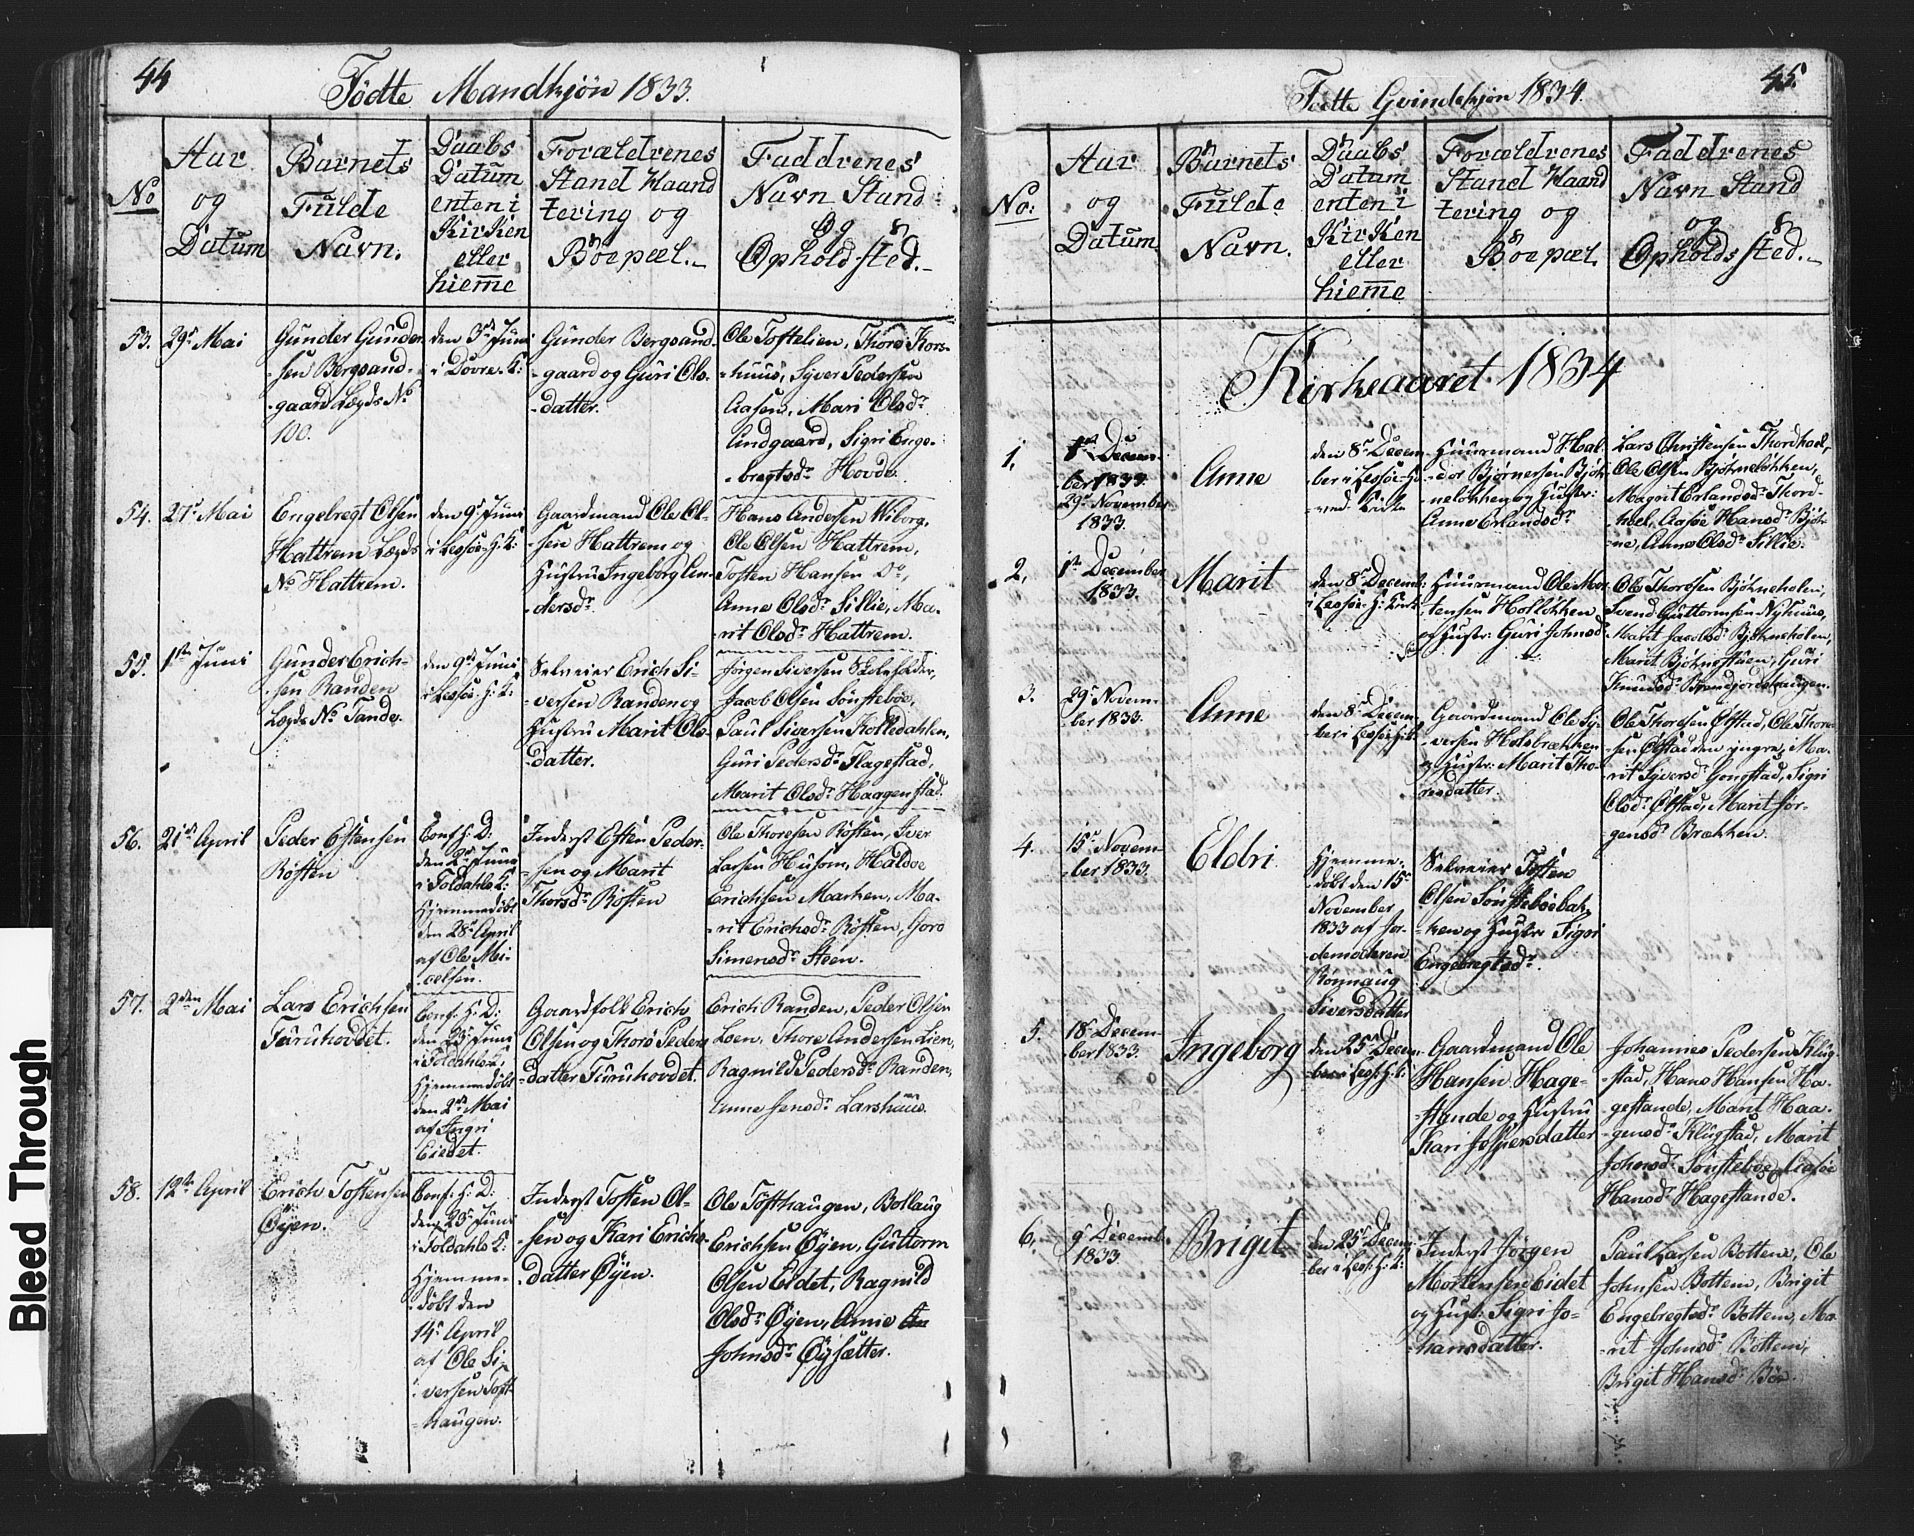 44
Födte Mandkjön 1833.
No
Aar
og
Datum
Barnets
Fulde
Navn.
Daabs
Datum
enten i
Kirken
eller
hieme
Forældrenes
Stand Haand
tering og
Boepæl.
Faddrenes
Navn Stand
og
Ophold sted.
53.
29s Mai
Gunder Gunder-
sen Bergsand-
gaard Lægds No
100.
den 3die Juni
i Dovre K:
Gunder Bergsand
gaard og Guri Ols-
datter.
Ole Toftelien, Thorö Kors-
huus, Syver Pedersen
Aasen, Mari Olsdr
Lindgaard, Sigri Enge-
bregtsdr Hovde.
54.
27s Mai
Engebregt Olsen
Hattrem Lægds
No Hattrem.
den 9s Juni
i Lessöe H: K:
Gaardmand Ole Ol-
sen Hattrem og
Hustru Ingeborg An-
dersdr
Hans Andersen Wiborg,
Ole Olsen Hattrem,
Tosten Hansen Do,
Anne Olsdr Sillie, Ma-
rit Olsdr Hattrem.
55.
1ste Juni
Gunder Erich-
sen Randen
Lægds No Tande.
den 9s Juni
i Lessöe H: K:
Selveier Erich Si-
versen Randen og
Hustru Marit Ols-
datter.
Jörgen Siversen
Jacob Olsen Sönsteböe,
Paul Siversen Kolledahlen,
Guri Pedersdr Flagestad,
Marit Olsdr Haagenstad.
56.
21de April
Peder Estensen
Rösten
Conf: H: D:
den Juni
i Foldahls K:
Hjemmedöbt
den 28s April
af Ole Mi-
celsen.
Inderst Esten Peder-
sen og Marit
Thorsdr Rösten
Ole Thoresen Rösten, Iver
Larsen Husom, Haldoe
Erichsen Marken, Ma-
rit Erichsdr Rösten, Goro
Simensdr Steen.
57.
2den Mai
Lars Erichsen
Furuhovdet.
Conf: H: D:
den 23s Juni
i Foldahls K:
Hjemmedöbt
den 2den Mai
af Ingri
Eiedet.
Gaardfolk Erich
Olsen og Thorö Peders
datter Furuhovdet.
Erich Randen, Peder Olsen
Loen, Thore Andersen Lien,
Ragnild Pedersdr Randen,
Anne Jensdr Larshuus.
58.
12te April
Erich Tostensen
Öyen.
Conf: H: D:
den 23s Juni
i Foldahls K:
Hjemme-
döbt den
14s April
af Ole Si-
versen Toft-
haugen.
Inderst Tosten Ol-
sen og Kari Erichs-
datter Öyen.
Ole Tofthaugen, Bollaug
Erichsen Öyen, Guttorm
Olsen Eidet, Ragnild
Olsdr Öyen, Anne
Johnsdr Öysætter.
45.
Födte Qvindekjön 1834.
No:
Aar
og
Datum
Barnets
Fulde
Navn.
Daabs
Datum
enten i
Kirken
eller
hieme
Forældrenes
Stand Haand
tering og
Boepæl.
Faddrenes
Navn Stand
og
Opholds sted.
Kirkeaaret 1834
1,
1ste Decem-
ber 1833.
29s November
1833.
Anne
den 8s Decem-
ber i Lessöe H-
Kirke
Huurmand Hal-
dor Björnersen Björ-
nelökken og Hustr:
Anne Erlandsdr
Lars Christensen Thordhoel,
Ole Olsen Björnelökken,
Magrit Erlandsdr Thord-
hoel, Aasöe Hansdr Björ-
ne, Anne Olsdr Sillie.
2,
1ste December
1833.
Marit
den 8s Decemb:
i Lessöe H: Kirke
Huurmand Ole Mor-
tensen Hollökken
og Hustr: Guri Johnsdr
Ole Thoresen Björneholen,
Svend Guttormsen Nyhuus,
Marit Jacobsdr Björneholen,
Marit Björnestuen, Guri
Knudsdr
3.
29s Novem-
ber 1833.
Anne
den 8s Decem-
ber i Lessöe H: K:
Gaardmand Ole Sy-
versen Holsbrækken
og Hustr: Marit Tho-
resdatter.
Ole Thoresen Ölstad, Ole Thore-
sen Ölstad den yngre, Ma-
rit Syversdr Gongstad, Sigri
Olsdr Ölstad, Marit Jör-
gensdr Brækken.
4.
15s Novem-
ber 1833.
Eldri
Hjemme-
döbt den 15s
November
1833 af Jor-
demoderen
Rönnaug
Siversdatter
Selveier Tosten
Olsen Sönsteböebak-
ken og Hustr Sigri
Engebregtsdr.
5.
18s Decem-
ber 1833.
Ingeborg
den 25s Decem-
ber i Less: H: K:
Gaardmand Ole
Hansen Hage-
stande og Hustru
Kari Jespersdatter
Johannes Pedersen Klug-
stad, Hans Hansen Ha-
gestande, Marit Haa-
gensdr Klugstad, Marit
Johnsdr Sönsteböe, Aasöe
Hansdr Hagestande.
6,
9s Decemb:
1833.
Brigit
den 25s Decem-
ber i Less: H: K:
Inderst Jörgen
Mortensen Eidet
og Hust: Sigri Jo-
hansdatter.
Paul Larsen Bottem, Ole
Johnsen Bottem, Brigit
Engebregtsdr Bottem, Ma-
rit Johnsdr Bottem,
Brigit Hansdr Böe.
Bleed Through